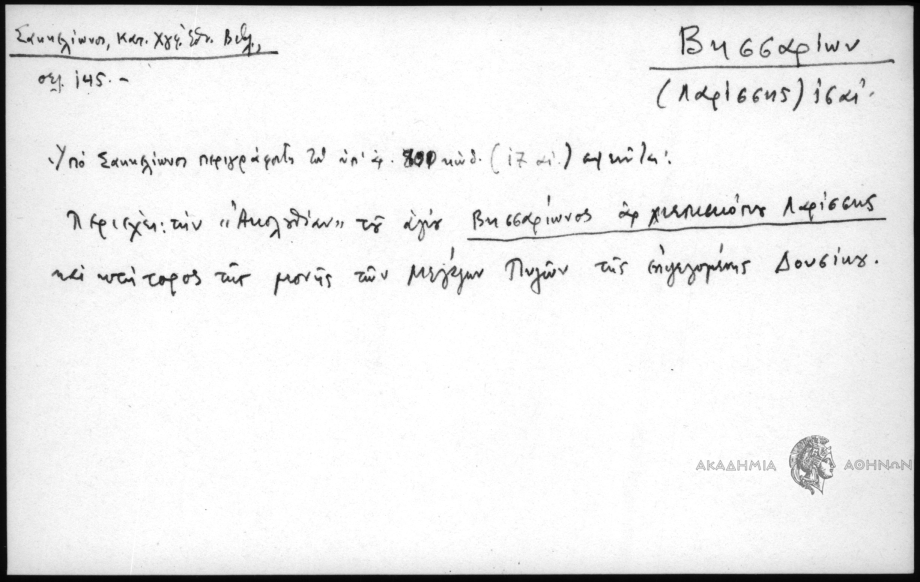 Σακκελίωνος, Κατ. Χγφ. Ἐθν. Βιβλ.,
σελ. 145. -
Βησσαρίων
(Λαρίσσης) ἱσαι.
Ὑπό Σακκελίωνος περιγράφεται τοῦ ὑπ' ἀρ. κώδ. (17 αἰ.)
Περιέχει: τήν «Ἀκολουθίαν» τοῦ ἁγίου Βησσαρίωνος ἀρχιεπισκόπου Λαρίσσης
καί κτήτορος τῆς μονῆς τῶν Μεγάλων Πυλῶν τῆς ἐπιλεγομένης Δουσίκου.
ΑΚΑΔΗΜΙΑ ΑΘΗΝΩΝ